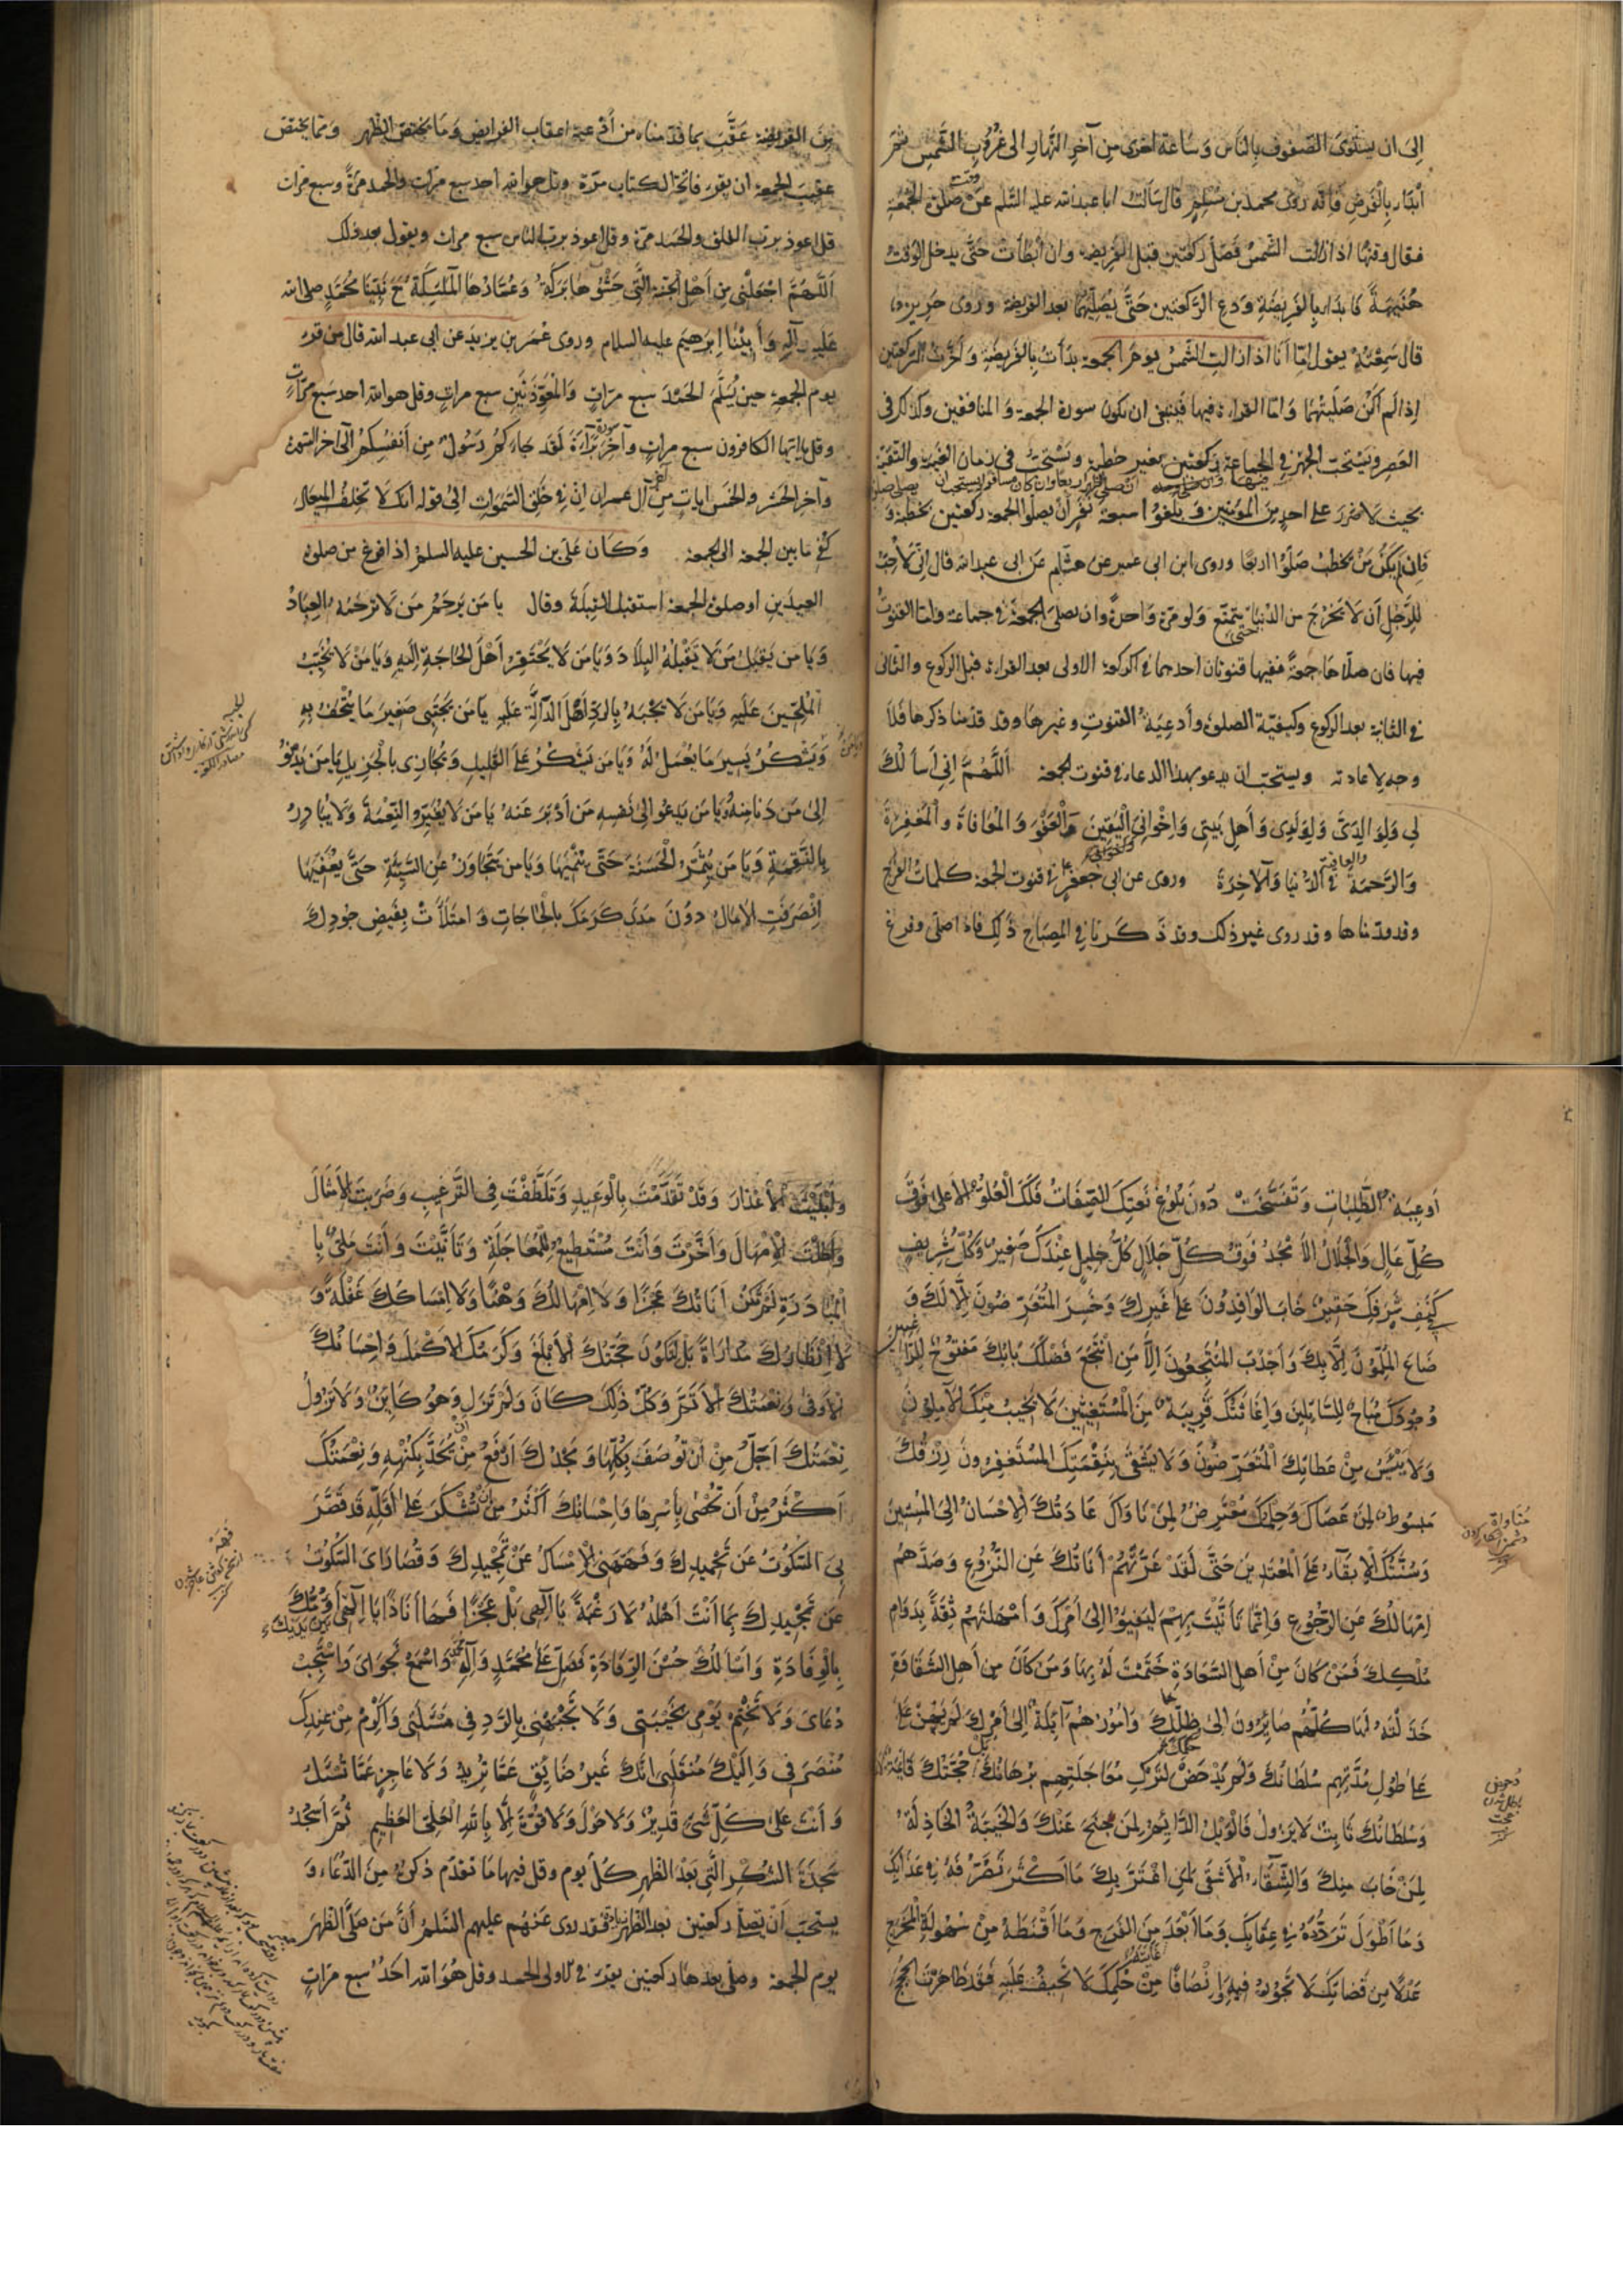 الى ان يستوى الصفوف بالناس وساعة اخرى من آخر النهار الى غروب الشمس ثم
ابدأ بالفرض فانه روى محمد بن مسلم قال سألت ابا عبد الله عليه السلم عن صلوة الجمعة
وقت
فقال وقتها اذا زالت الشمس فصل ركعتين قبل الفريضة وان ابطأت حتى يدخل الوقت
هنيهة فابدا بالفريضة ودع الركعتين حتى يصليهما بعد الفريضة وروى حريز
قال سمعته يقول اما أنا اذا زالت الشمس يوم الجمعة بدأت بالفريضة وأخرت الركعتين
إذا لم أكن صليتهما واما القراءة فيها فينبغى ان تكون سورة الجمعة والمنافقين وكذلك فى
العصر ويستحب الجهر فى الجماعة ركعتين بغير خطبة ويستحب فى زمان الغيبة والتقية
بحيث لا ضرر على احد من المؤمنين بلغوا سبعة نفر أن يصلوا الجمعة ركعتين بخطبة و
فان لم يكن من يخطب صلوا اربعا وروى ابن ابى عمير عن هشام عن ابى عبد الله قال إنى لأحب
للرجل أن لا يخرج من الدنيا يتمتع ولو مرة واحدة وان يصلى الجمعة فى جماعة واما القنوت
حتى
فيها فان صلاها جمعة ففيها قنوتان احدهما فى الركعة الاولى بعد القراءة قبل الركوع والثانى
فى الثانية بعد الركوع وكيفية الصلوة وأدعية القنوت وغيرها وقد قدمنا ذكرها فلا
وجه لإعادته ويستحب ان يدعو بهذا الدعاء فى قنوت الجمعة اللهم إنى أسألك
لى ولوالدى ولولدى وأهل بيتى وإخوانى اليقين والعفو والمعافاة والمغفرة
والرحمة فى الدنيا والآخرة وروى عن ابى جعفر فى قنوت الجمعة كلمات الفرج
والعافية
وقد قدمناها وقد روى غير ذلك وقد ذكرنا فى المصباح ذلك فاذا صلى وفرغ
من الفريضة عقب بما قدمناه من أدعية اعقاب الفرايض وما يختص الظهر ومما يختص
عقيب الجمعة ان يقرء فاتحة الكتاب مرة وقل هو الله احد سبع مرات والحمد مرة وسبع مرات
قل اعوذ برب الفلق والحمد مرة وقل اعوذ برب الناس سبع مرات ويقول بعد ذلك
اللهم اجعلنى من أهل الجنة التى حشوها بركة وعمارها الملئكة مع نبينا محمد صلى الله
عليه وآله وأبينا إبرهيم عليه السلام وروى عمر بن يزيد عن ابى عبد الله قال من قرء
يوم الجمعة حين يسلم الحمد سبع مرات والمعوذتين سبع مرات وقل هو الله احد سبع مرات
وقل يا ايها الكافرون سبع مرات وآخر براءة لقد جاءكم رسول من أنفسكم الى اخر السورة
وآخر الحشر والخمس ايات من آل عمران إن فى خلق السموات الى قوله انك لا تخلف الميعاد
كفى ما بين الجمعة الى الجمعة وكان على بن الحسين عليه السلم اذا فرغ من صلوة
العيدين او صلوة الجمعة استقبل القبلة وقال يا من يرحم من لا ترحمه العباد
ويا من يقبل من لا يقبله البلاد ويا من لا يحتقر أهل الحاجة إليه ويا من لا يخيب
الملحين عليه ويا من لا يجبه بالرد أهل الدالة عليه يا من يجتبى صغير ما يتحف به
ويشكر يسير ما يعمل له ويا من يشكر على القليل ويجازى بالجزيل يا من يدنو
إلى من دنا منه ويا من يدعو الى نفسه من أدبر عنه يا من لا يغير النعمة ولا يبادر
بالنقمة ويا من يثمر الحسنة حتى ينميها ويا من يتجاوز عن السيئة حتى يعفيها
انصرفت الامال دون مدى كرمك بالحاجات وامتلأت بفيض جودك
أوعية الطلبات وتفسخت دون بلوغ نعتك الصفات فلك العلو الاعلى فوق
كل عال والجلال الأمجد فوق كل جلال كل جليل عندك صغير وكل شريف
فى كنف شرفك حقير خاب الوافدون على غيرك وخسر المتعرضون إلا لك و
ضاع الملمون إلا بك وأجدب المنتجعون إلا من انتجع فضلك بابك مفتوح للراغبين
وجودك مباح للسائلين وإغاثتك قريبة من المستغيثين لا يخيب منك الآملون
ولا ييئس من عطائك المتعرضون ولا يشقى بنقمتك المستغفرون رزقك
مبسوط لمن عصاك وحلمك معترض لمن ناواك عادتك الإحسان الى المسيئين
وسنتك الإبقاء على المعتدين حتى لقد غرتهم أناتك عن النزوع وصدهم
إمهالك عن الرجوع وإنما تأنيت بهم ليفيئوا إلى أمرك وأمهلتهم ثقة بدوام
ملكك فمن كان من أهل السعادة ختمت له بها ومن كان من أهل الشقاوة
خذلته لها كلهم صائرون الى ظلك وأمورهم آئلة إلى أمرك لم يهن على
حكمك
على طول مدتهم سلطانك ولم يدحض لترك معاجلتهم برهانك حجتك قائمة
وسلطانك ثابت لا يزول فالويل الدائم لمن جنح عنك والخيبة الخاذلة
لمن خاب منك والشقاء الأشقى لمن اغتر بك ما اكثر تصرفه فى عذابك
وما أطول تردده فى عقابك وما أبعد من الفرج وما أقنطه من سهولة المخرج
عدلا من قضائك لا تجور فيه وإنصافا من حكمك لا تحيف عليه فقد ظاهرت الحجج
وأبليت الأعذار وقد تقدمت بالوعيد وتلطفت فى الترغيب وضربت الأمثال
وأطلت الإمهال وأخرت وأنت مستطيع للمعاجلة وتأنيت وأنت ملئ با
لمبادرة لم تكن أناتك عجزا ولا امهالك وهنا ولا إمساكك غفلة و
لا انتظارك مداراة بل لتكون حجتك الأبلغ وكرمك الاكمل وإحسانك
الأوفى ونعمتك الأتم وكل ذلك كان ولم تزل وهو كائن ولا يزول
نعمتك أجل من ان توصف بكلها ومجدك أرفع من تحد بكنهه ونعمتك
أن
أكثر من أن تحصى بأسرها وإحسانك أكثر من ان تشكر على أقله قد قصر
بى السكوت عن تحميدك وفههنى الإمساك عن تمجيدك وقصاراى السكوت
عن تمجيدك بما أنت أهله لا رغبة يا إلهى بل عجزا فها أنا ذا يا إلهى أؤمك
بالوفادة وأسألك حسن الرفادة فصل على محمد وآله واسمع نجواى واستجب
دعاى ولا تختم يومى بخيبتى ولا تجبهنى بالرد فى مسئلتى وأكرم من عندك
منصرفى وإليك منقلبى انك غير ضايق عما تريد ولا عاجز عما تسئل
وأنت على كل شئ قدير ولا حول ولا قوة إلا بالله العلى العظيم ثم أسجد
سجدة الشكر التى بعد الظهر كل يوم وقل فيها ما تقدم ذكره من الدعاء و
يستحب أن يصلى ركعتين بعد الظهر فقد روى عنهم عليهم السلم أن من صلى الظهر
يوم الجمعة وصلى بعدها ركعتين يقرء فى الاولى الحمد وقل هو الله احد سبع مرات